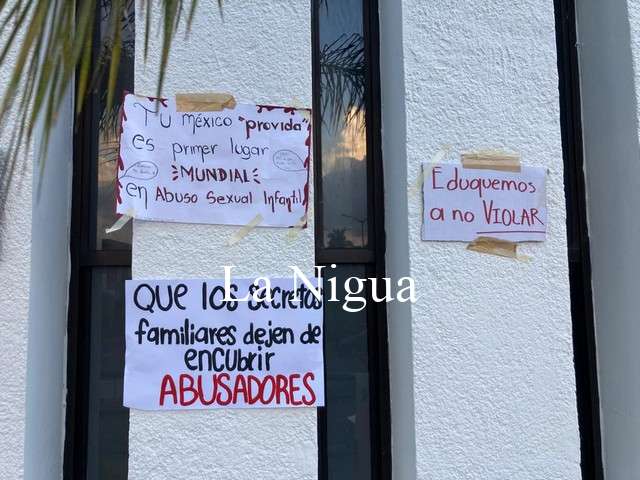 Tu méxico "provida"
es primer lugar
MUNDIAL
en Abuso Sexual Infantil
Eduquemos
a no VIOLAR
La Nigua
Que los secretos
familiares dejen de
encubrir
ABUSADORES